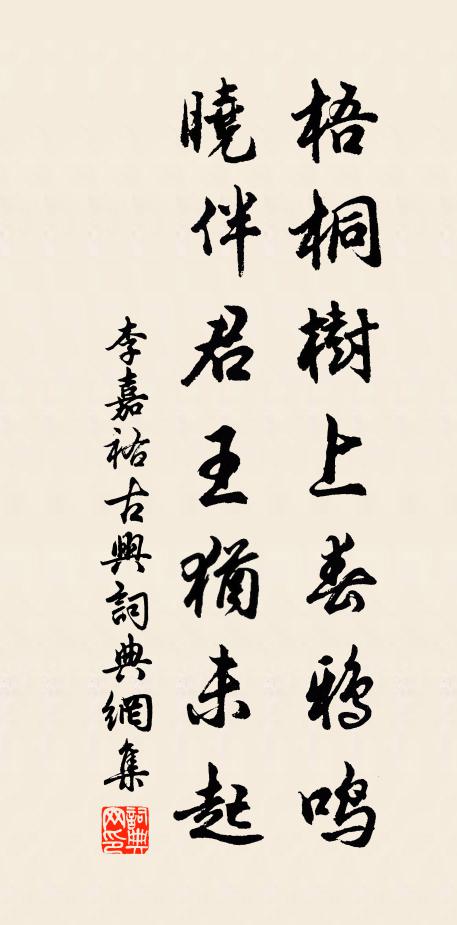 梧桐樹上春鴉鳴
曉伴君王猶未起
李嘉祐古典詞典網集
詞典网印